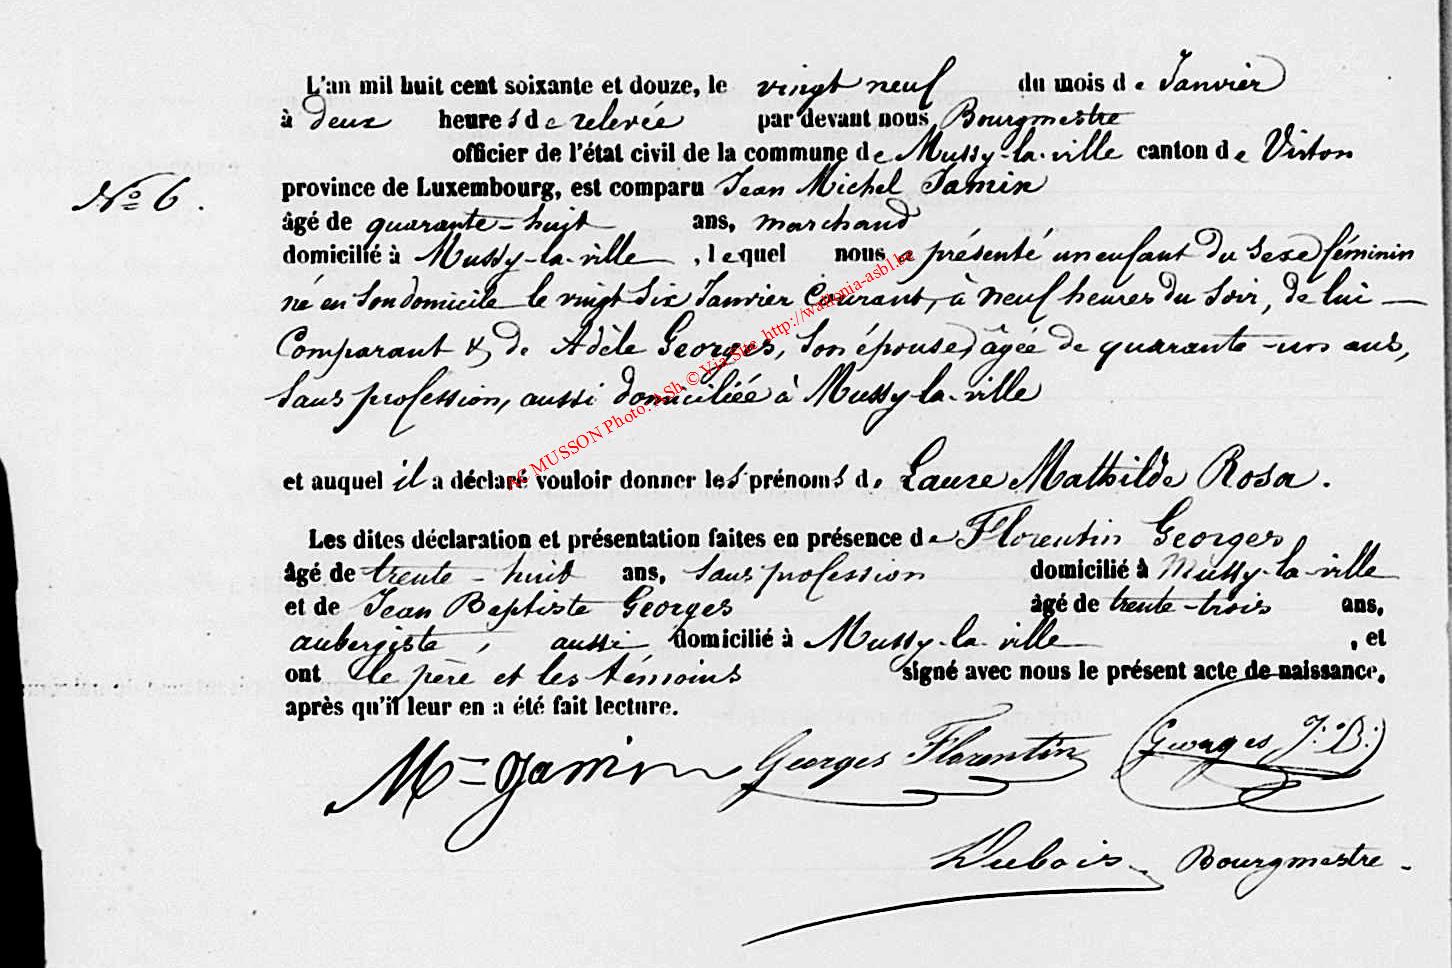 L'an mil huit cent soixante et douze, le vingt neuf du mois de Janvier
à deux heures de relevée par devant nous Bourgmestre
officier de l'état civil de la commune de Mussy-la-ville canton de Virton
N° 6. province de Luxembourg, est comparu Jean Michel Jamin
âgé de quarante-huit ans, marchand
domicilié à Mussy-la-ville, lequel nous a présenté un enfant du sexe féminin
né en son domicile le vingt six Janvier Courant, à neuf heures du soir, de lui —
Comparant & de Adèle Georges, son épouse, âgée de quarante-un ans,
sans profession, aussi domiciliée à Mussy-la-ville
et auquel il a déclaré vouloir donner les prénoms de Laure Mathilde Rosa.
Les dites déclaration et présentation faites en présence de Florentin Georges
âgé de trente-huit ans, sans profession domicilié à Mussy-la-ville
et de Jean Baptiste Georges âgé de trente-trois ans,
aubergiste, aussi domicilié à Mussy-la-ville, et
ont le père et les témoins signé avec nous le présent acte de naissance,
après qu'il leur en a été fait lecture.
M= Jamin Georges Florentin Georges, J: B:
Dubois Bourgmestre.
AC MUSSON Photo: ASb © Via Site http://wallonia-asbl.be